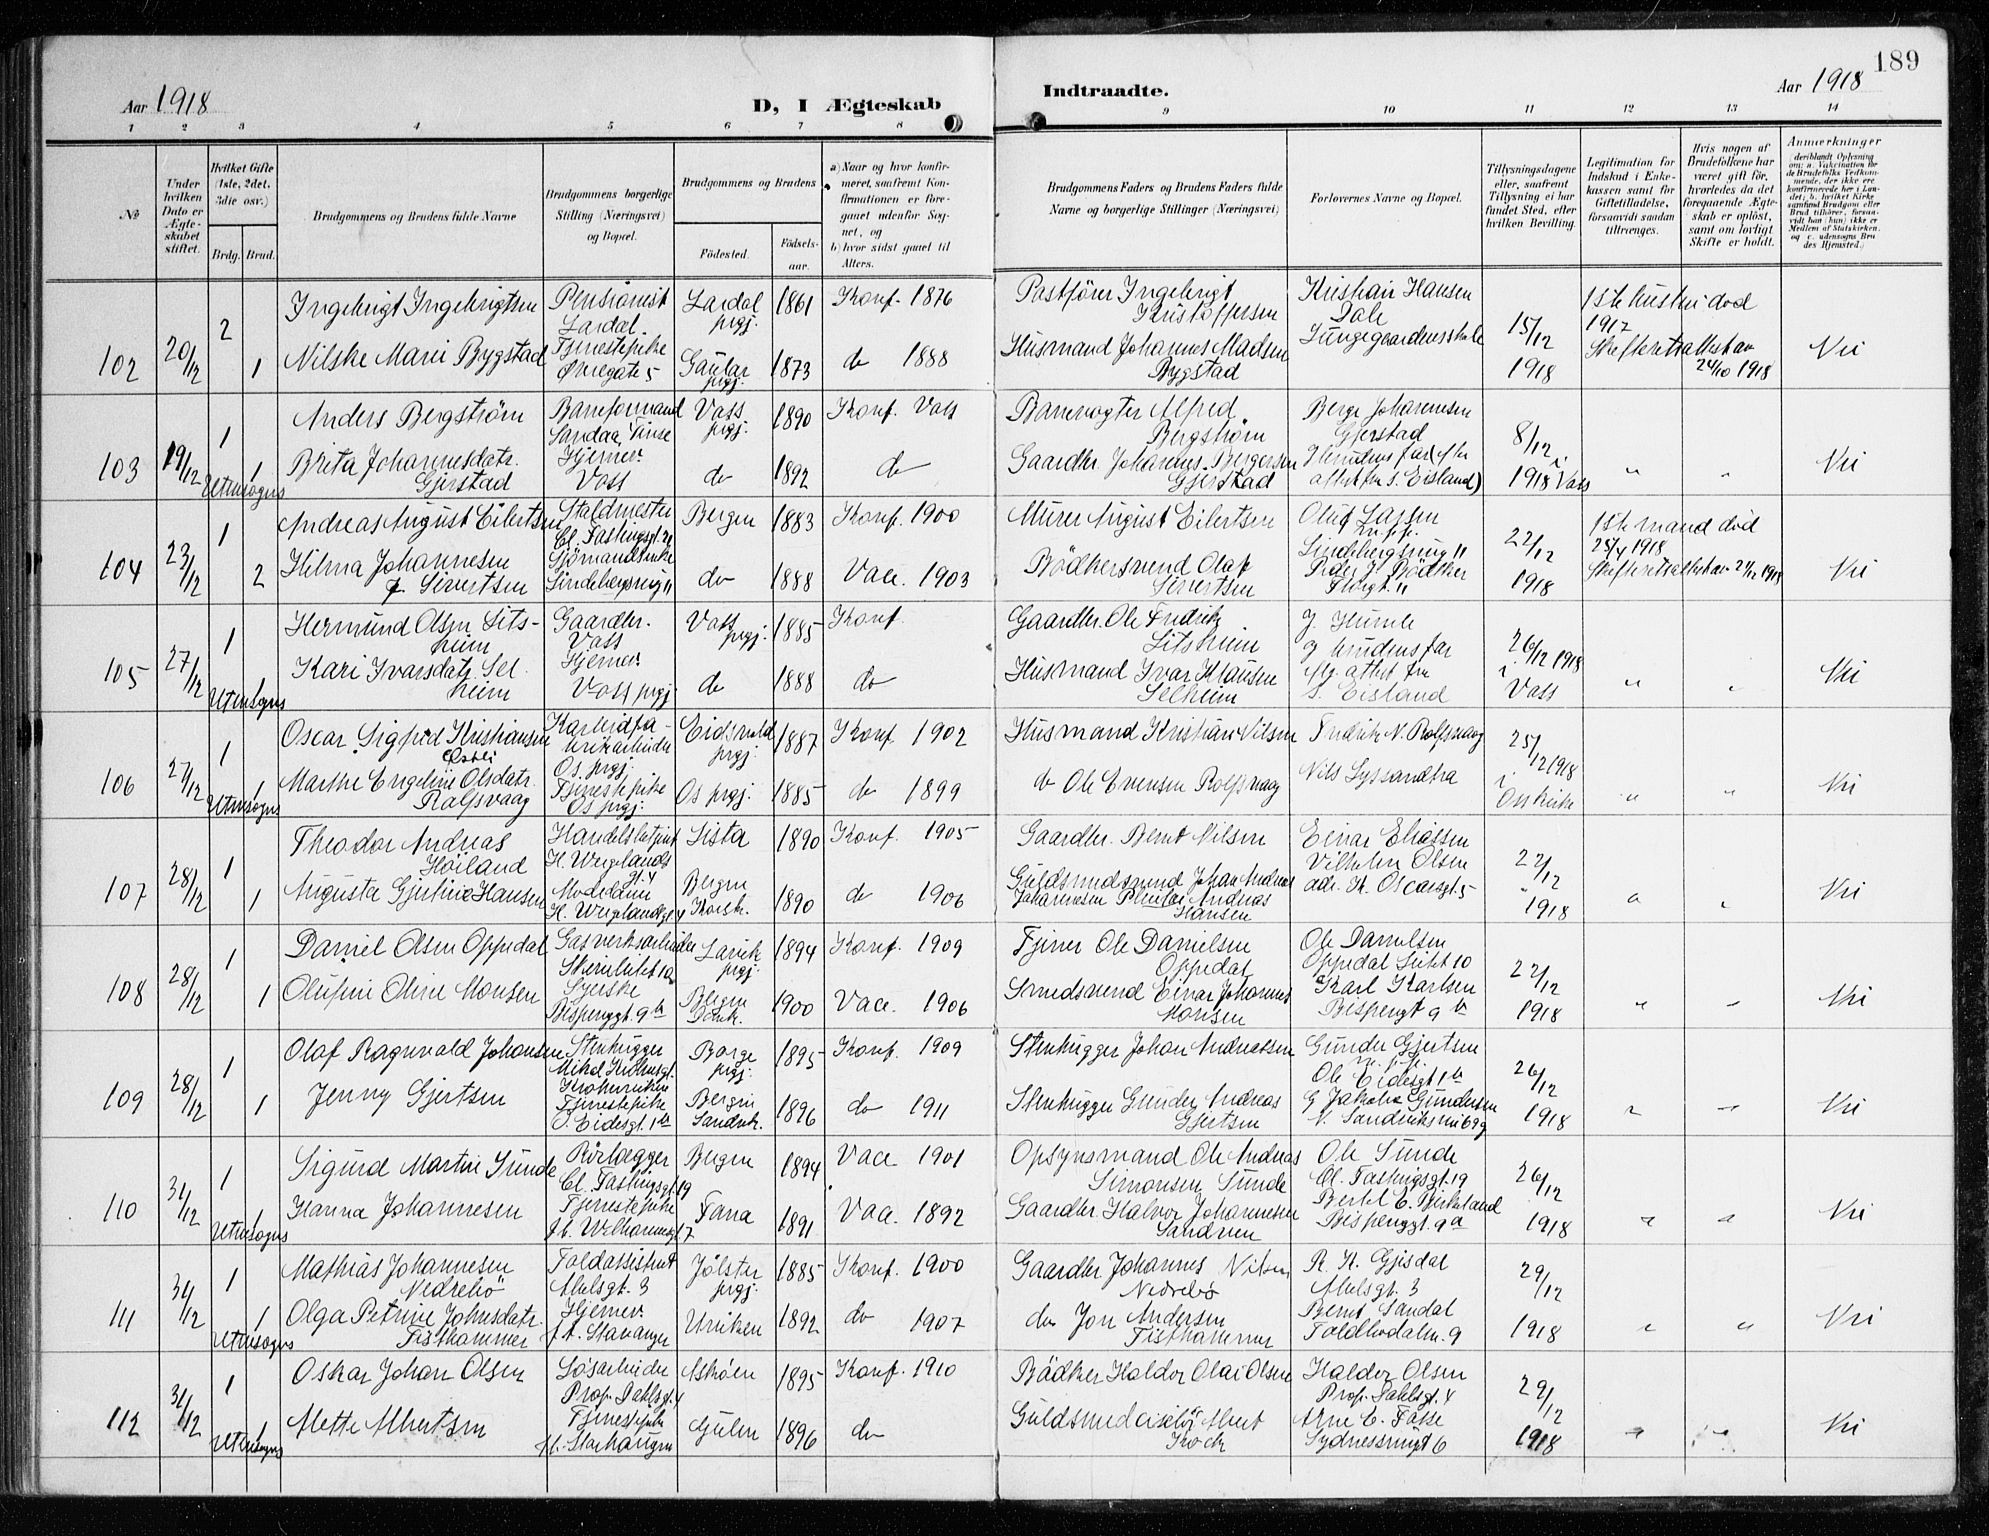 189
Aar 1918
D, I Ægteskab
Indtraadte.
Aar 1918
1 2 3 4 5 6 7 8 9 10 11 12 13 14
No
Under hvilken Dato er Ægteskabet stiftet.
Hvilket Gifte (1ste, 2det, 3die osv.)
Brdg. Brud.
Brudgommens og Brudens fulde Navne
Brudgommens borgerlige Stilling (Næringsvei) og Bopæl.
Brudgommens og Brudens
Födested. Födselsaar.
a) Naar og hvor konfirmeret, saafremt Konfirmationen er foregaaet udenför Sognet, og
b) hvor sidst gaaet til Alters.
Brudgommens Faders og Brudens Faders fulde Navne og borgerlige Stillinger (Næringsvei)
Forlovernes Navne og Bopæl.
Tillysningsdagene eller, saafremt Tillysning ei har fundet Sted, efter hvilken Bevilling.
Legitimation for Indskud i Enkekassen samt for Giftetilladelse, forsaavidt saadan tiltrænges.
Hvis nogen af Brudefolkene har været gift för, hvorledes da det foregaaende Ægteskab er oplöst, samt om lovligt Skifte er holdt.
Anmerkninger
deriblandt Oplysning om: a. Vakcination for de Brudefolks Vedkommende, der ikke ere konfirmerede her i Landet; b. hvilket Kirkesamfund Brudgom eller Brud tilhörer, forsaavidt han (hun) ikke er Medlem af Statskirken, og c. udensogns Brudes Hjemsted.)
102 20/12 2 Ingebrigt Ingebrigtsen Pensionist Lardal prgj. 1861 Konf. 1876 Postförer Ingebrigt Kristoffersen Kristian Hansen Dale 15/12 1918 1ste hustru död 1917 Skifteretsattest av 24/10 1918 Nei
1 Nilske Marie Bygstad Tjenestepike Övregate 5 Gaular prgj. 1873 do 1888 Husmand Johannes Madsen Bygstad
103 19/12 1 Anders Bergström Baneformand Vass prgj. 1890 Konf. Vass Banevogter Alfred Bergström Berge Johannesen Gjerstad 8/12 1918 i Vass " " Nei
1 Utensogns Brita Johannesdatr. Gjerstad Hjemev. Vass do 1892 do Gaardbr. Johannes Bergersen Gjerstad
104 23/12 1 Andreas August Eilertsen Staldmester Cl. Fastingsgt. Bergen 1883 Konf. 1900 Murer August Eilertsen Oluf Larsen 22/12 1918 1ste mand död 25/4 1918 Skifteretsattest av 21/12 1918 Nei
2 Hilma Johannesen f. Sivertsen Sjömandsenke 11 do 1888 Vace. 1903 Bödkersvend Olaf Sivertsen Peder J. Bödtker
105 27/12 1 Hermund Olsen Sitsheim Gaardbr. Vass Vass prgj. 1885 Konf. Gaardbr. Ole Fredrik Sitsheim og brudens far 26/12 1918 i Vass " " Nei
1 Utensogns Kari Ivarsdatr. Selheim Hjemev. Vass prgj. do 1888 do Husmand Ivar Klausen Selheim S. Eisland
106 27/12 1 Oscar Sigfred Kristiansen Östli Os. prgj. Eidsvold prgj. 1887 Konf. 1902 Husmand Kristian Nilsen Fredrik N. Rolfsvaag 25/12 1918 i Oskirke " " Nei
1 Utensogns Marthe Engeline Olsdatr. Rolfsvaag Tjenestepike Os prgj. Os prgj. 1885 do 1899 do Ole Evensen Rolfsvaag Nils Lyssandtræ
107 28/12 1 Theodor Andreas Höiland Handelsbetjent H. Wergelandsgt. 4 Lista 1890 Konf. 1905 Gaardbr. Bernt Nilsen Einar Eliassen Vilhelm Olsen 22/12 1918 " " Nei
1 Augusta Gjertine Hansen H. Wergelandsgt. 4 Bergen Korsk. 1890 do 1906 Guldsmedsvend Johan Andreas Johannesen Andreas Hansen adr. K. Oscarsgt. 5
108 28/12 1 Daniel Olsen Oppedal Gasverksarbeider Lavik prgj. 1894 Konf. 1909 Ole Danielsen Oppedal Ole Danielsen Oppedal 22/12 1918 " " Nei
1 Olufine Oline Monsen Syerske Bispenggt. 9b Bergen Domk. 1900 Vace. 1906 Smedsvend Einar Johannes Monsen Karl Karlsen Bispengt 9b
109 28/12 1 Olaf Ragnvald Johansen Stenhugger Borge prgj. 1895 Konf. 1909 Stenhugger Johan Andreassen Gunder Gjertsen O. Eidesgt 1b 26/12 1918 " " Nei
1 Jenny Gjertsen Tjenestepike O. Eidesgt. 1b Bergen Sandvk. 1896 do 1911 Stenhugger Gunder Andreas Gjertsen G Jakobs Gundersen
110 31/12 1 Sigurd Martin Sunde Rörlægger Cl. Fastingsgt. 19 Bergen 1894 Vace. 1901 Opsynsmand Ole Andreas Simonsen Sunde Ole Sunde Cl. Fastingsgt. 19 26/12 1918 " " Nei
1 Utensogns Hanna Johannesen Tjenestepike Fana 1891 Vace. 1892 Gaardbr. Halvor Johannesen Sandven Bertel E. Birkeland Bispenggt. 9a
111 31/12 1 Mathias Johannesen Nedrebö Toldassistent Abelsgt. 3 Jölster prgj. 1885 Konf. 1900 Gaardbr Johannes Nilsen Nedrebö R. K. Gjesdal Abelsgt. 3 29/12 1918 " " Nei
1 Utensogns Olga Petrine Johnsdatr. Fisthammer Hjemev. f. t. Stavanger 1892 do 1907 do Jon Andersen Fisthammer Bernt Sandal
112 31/12 1 Oskar Johan Olsen Prof. Dahlsgt. 4 Asköen 1895 Konf. 1910 Bödker Haldor Olai Olsen Haldor Olsen Prof. Dahlsgt. 4 29/12 1918 " " Nei
1 Utensogns Mette Albertsen Tjenestepike Gulen 1896 do Guldsmedciselör Albert Koch Arne E. Fosse Sydnessmugt 6